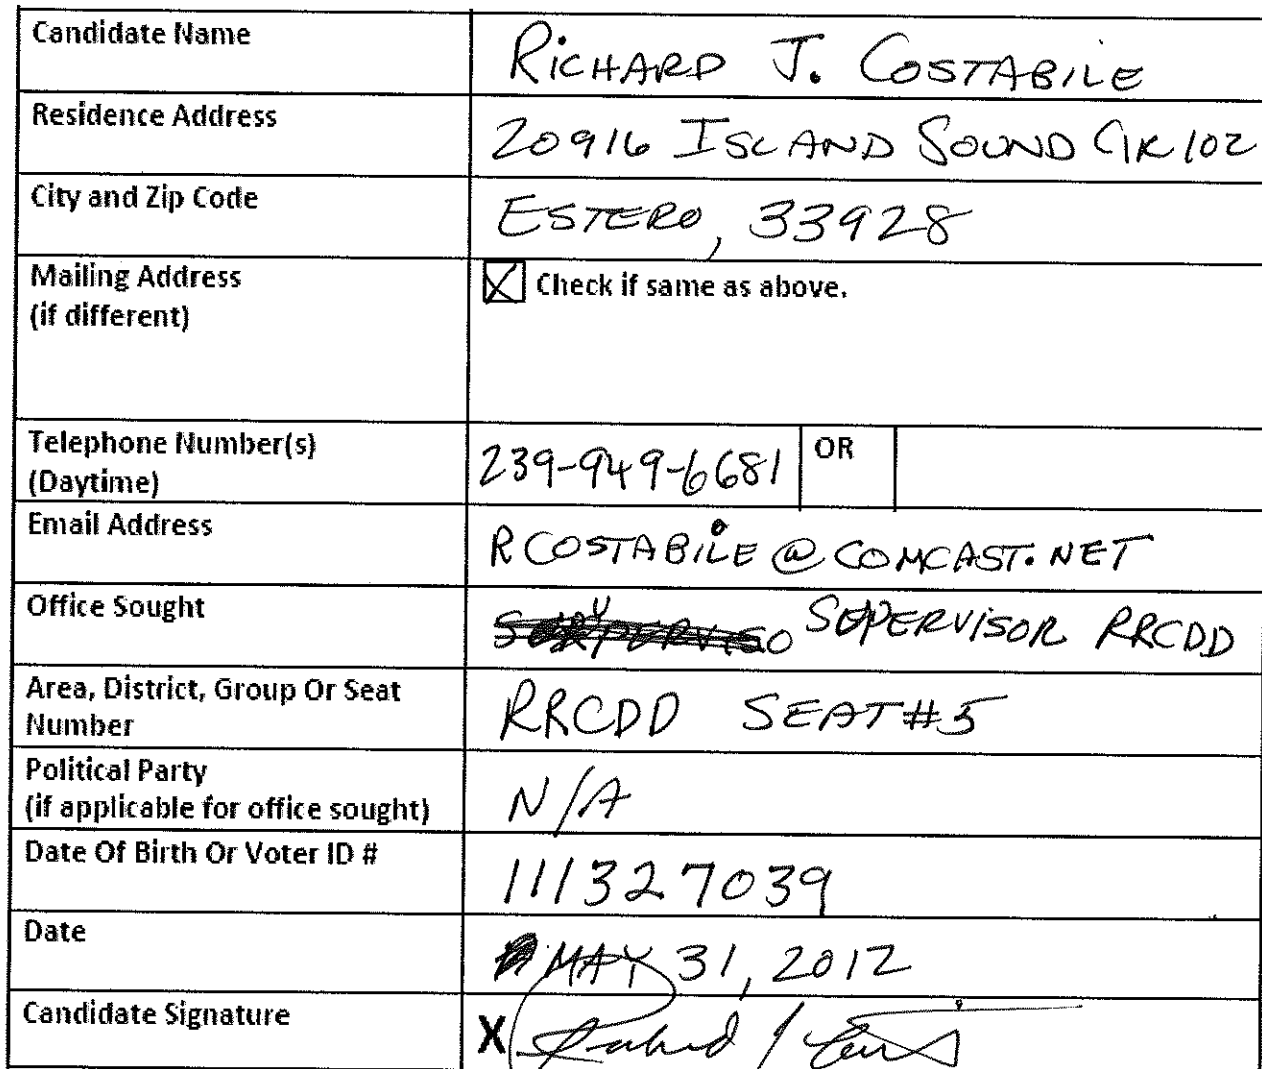 Candidate Name RICHARD J. COSTABILE
Residence Address 20916 ISLAND SOUND CIR 102
City and Zip Code ESTERO, 33928
Mailing Address ☒ Check if same as above.
(if different)
Telephone Number(s) 239-949-6681 OR
(Daytime)
Email Address RCOSTABILE@COMCAST.NET
Office Sought SUPERVISOR RRCDD
Area, District, Group Or Seat RRCDD SEAT #5
Number
Political Party N/A
(if applicable for office sought)
Date Of Birth Or Voter ID # 111327039
Date MAY 31, 2012
Candidate Signature X